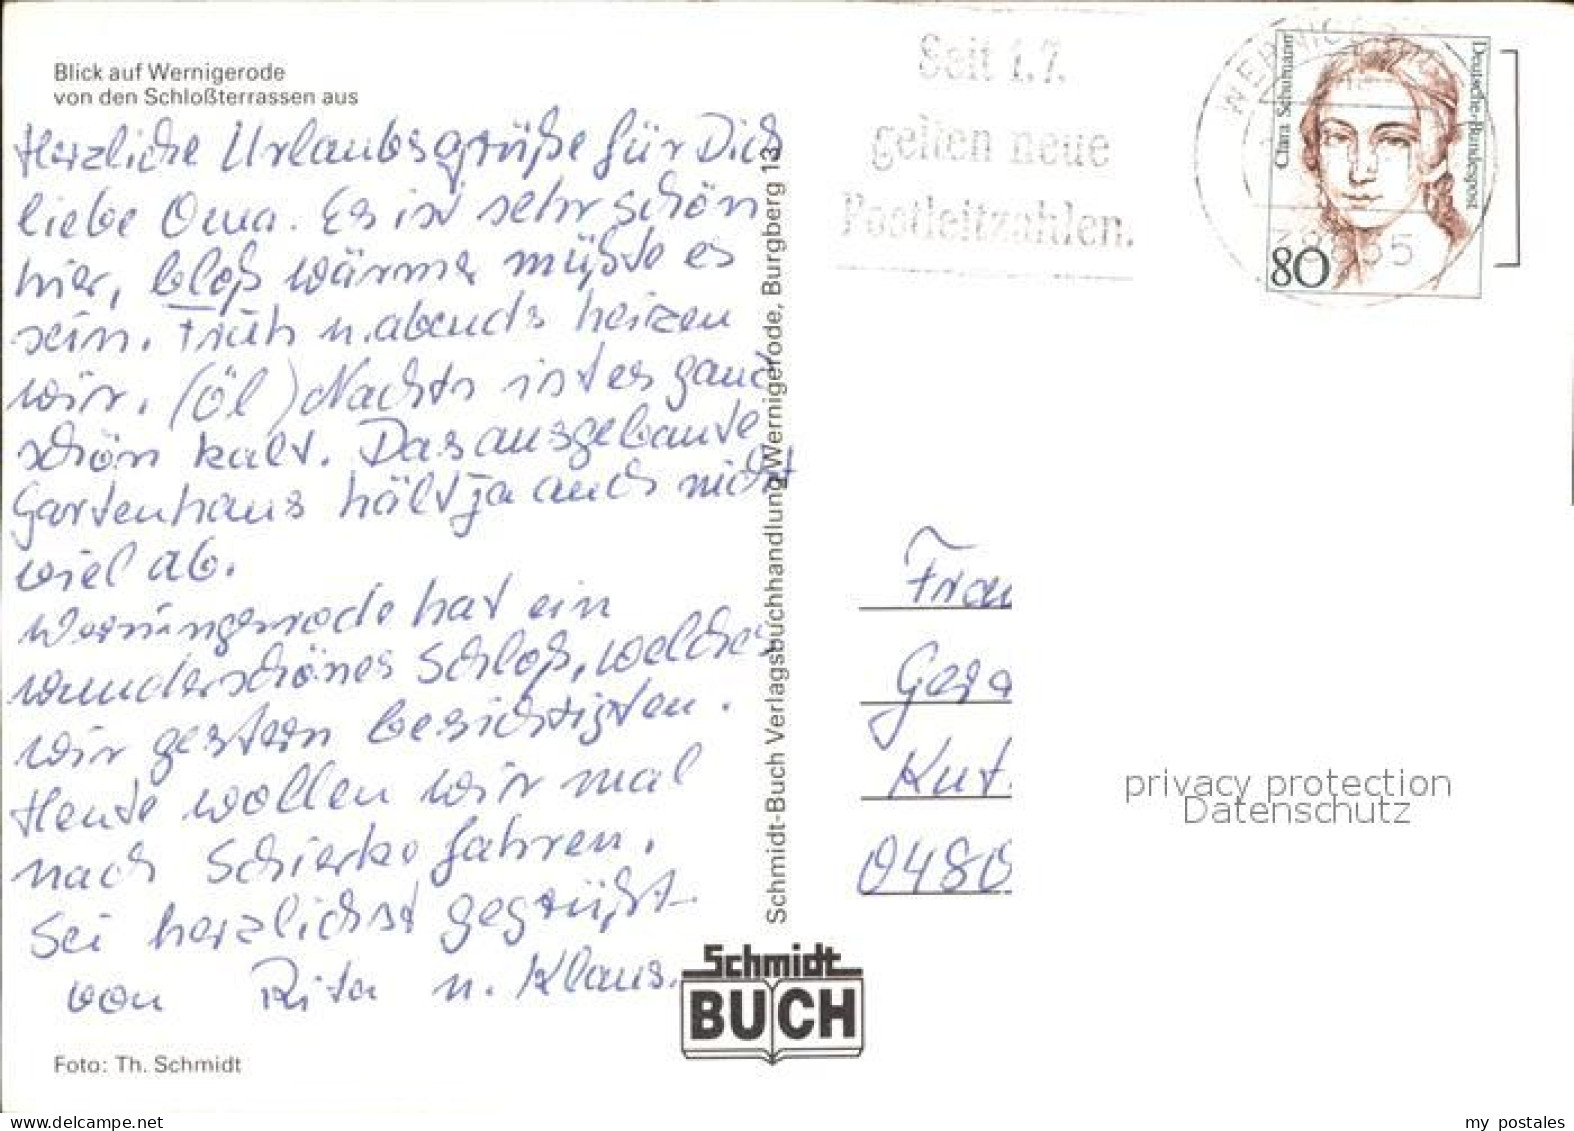 Blick auf Wernigerode
von den Schloßterrassen aus
Herzliche Urlaubsgrüße für Dich
liebe Oma. Es ist sehr schön
hier, bloß wärmer müßte es
sein. Früh u. abends heizen
wir. (Öl) Nachts ist es ganz
schön kalt. Das ausgebaute
Gartenhaus hält ja auch nicht
viel ab.
Wernigerode hat ein
wunderschönes Schloß, welches
wir gestern besichtigten.
Heute wollen wir mal
nach Schierke fahren.
Sei herzlichst gegrüßt
von Rita u. Klaus.
Foto: Th. Schmidt
Schmidt-Buch Verlagsbuchhandlung, Wernigerode, Burgberg 13
Schmidt
BUCH
Seit 1.7.
gelten neue
Postleitzahlen.
Clara Schumann
Deutsche Bundespost
80
Frau
Gera
Kut
0480
privacy protection
Datenschutz
my postales